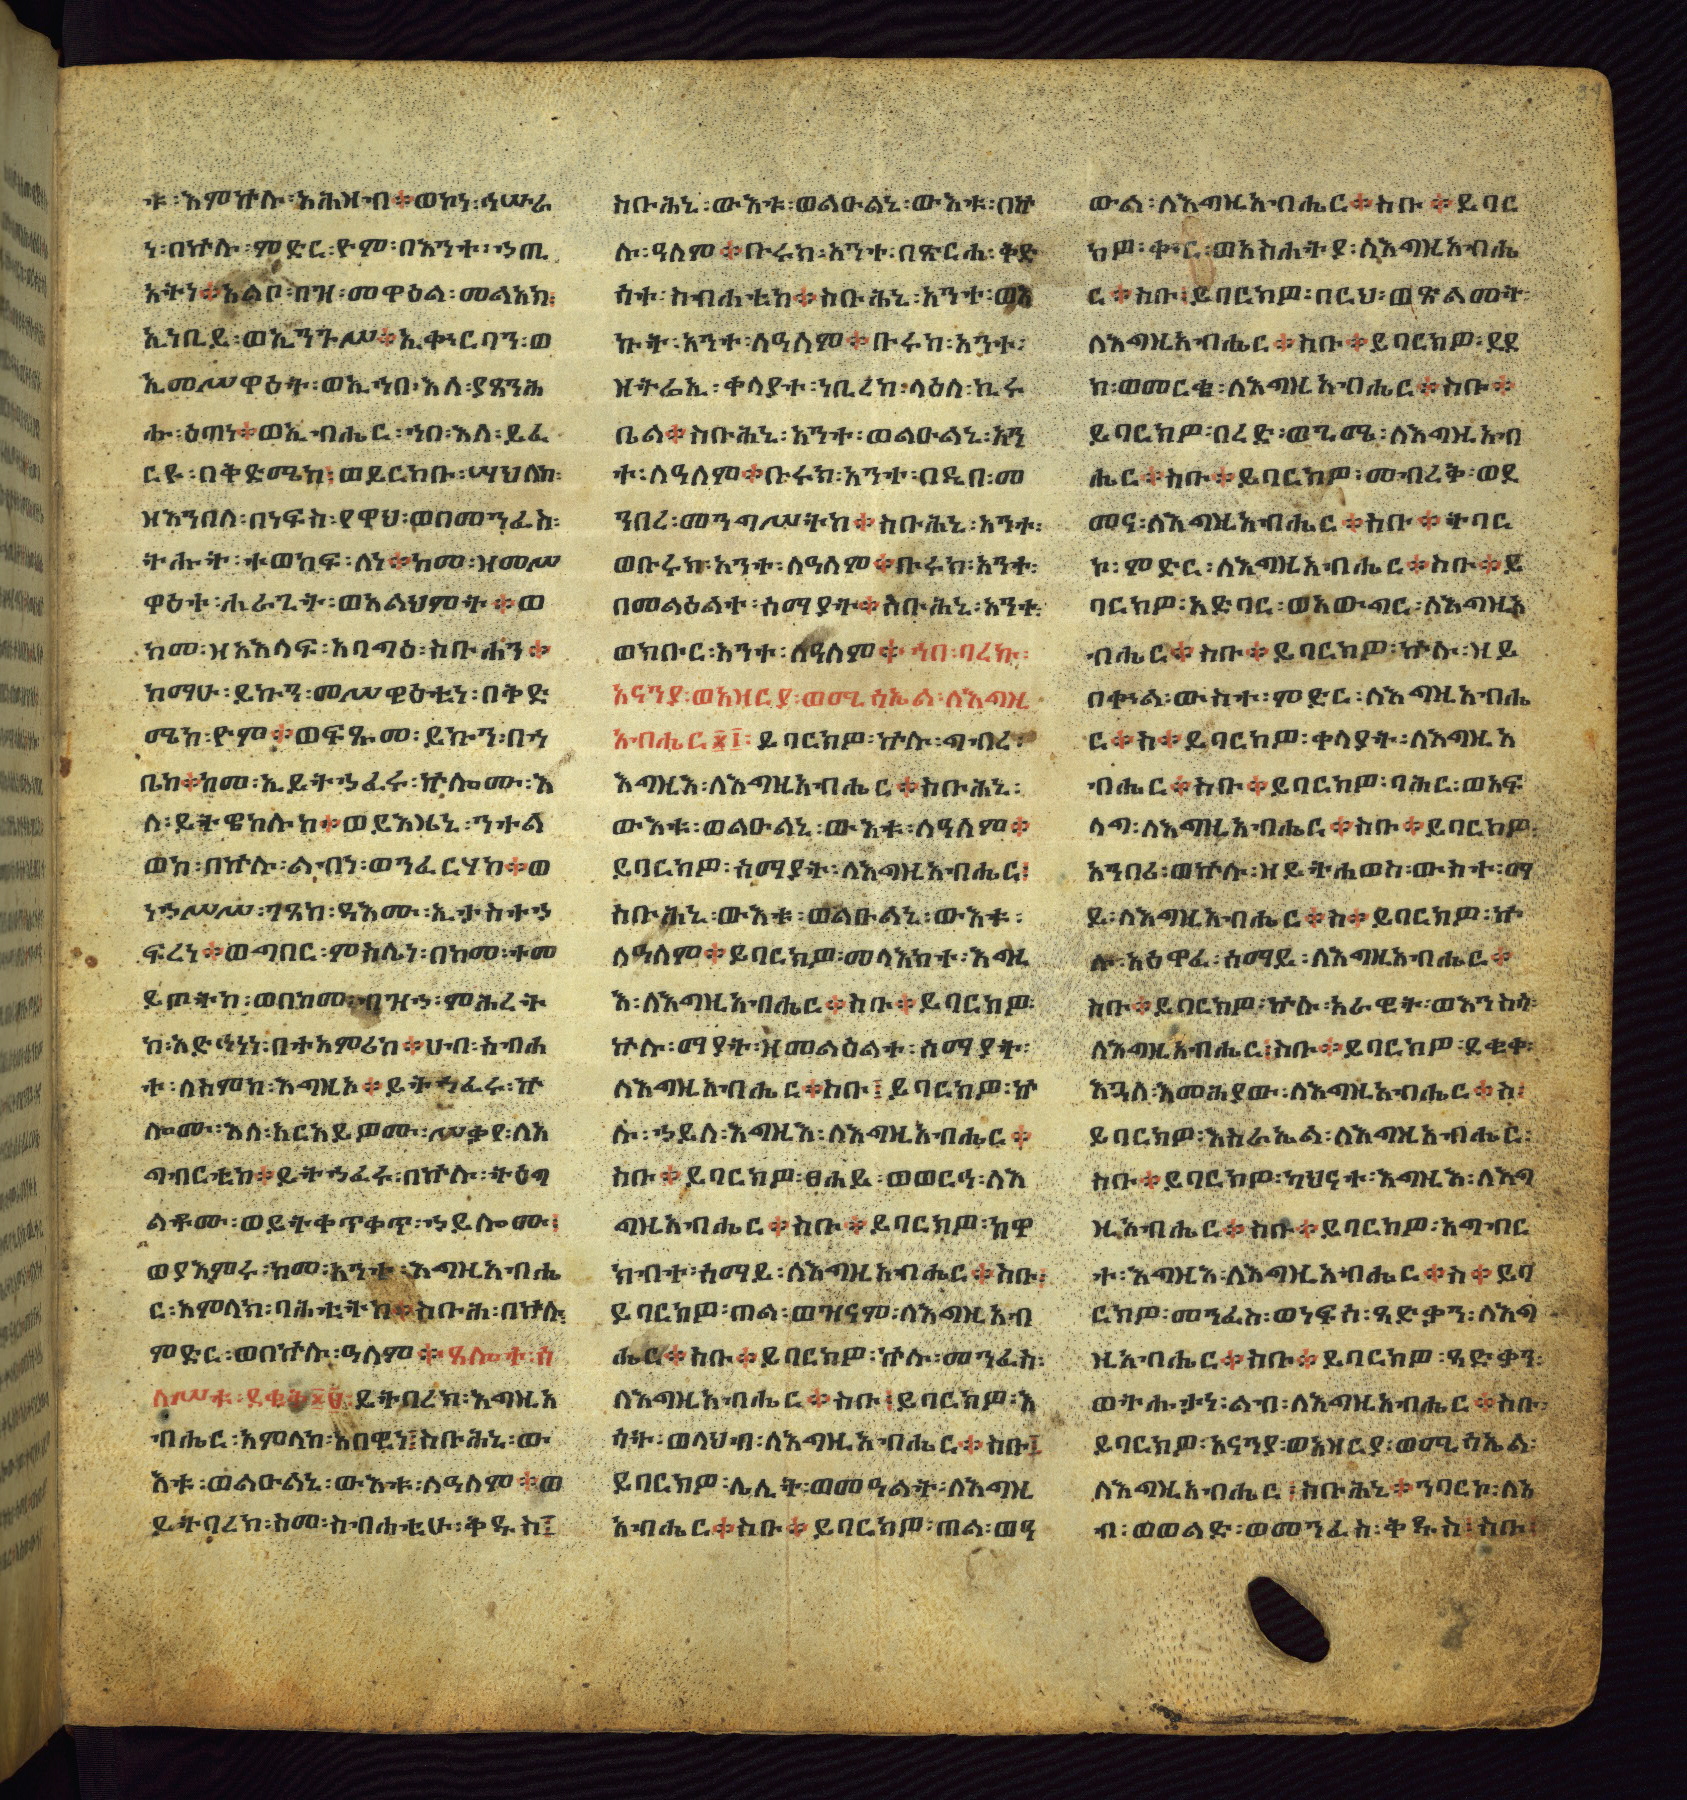 ቱ ፡ እምኵሉ ፡ አሕዛብ ፨ ወኮነ ፡ ኅሡራ
ነ ፡ በኵሉ ፡ ምድር ፡ ዮም ፡ በእንተ ፡ ኃጢ
አትነ ፨ አልቦ ፡ በዝ ፡ መዋዕል ፡ መልአክ ፡
ኢነቢይ ፡ ወኢንጉሥ ፨ ኢቍርባን ፡ ወ
ኢመሥዋዕት ፡ ወኢኀበ ፡ እለ ፡ ያጼንሕ
ሑ ፡ ዕጣነ ፨ ወኢብሔር ፡ ኀበ ፡ እለ ፡ ይፈ
ርዩ ፡ በቅድሜከ ፡ ወይርከቡ ፡ ሣህለከ ፡
ዝእንበለ ፡ በነፍስ ፡ የዋህ ፡ ወበመንፈስ ፡
ትሑት ፡ ተወከፍ ፡ ለነ ፨ ከመ ፡ ዝመሥ
ዋዕተ ፡ ሐራጊት ፡ ወአልህምት ፨ ወ
ከመ ፡ ዝአእላፍ ፡ አባግዕ ፡ ስቡሐን ፨
ከማሁ ፡ ይኩን ፡ መሥዊዕቲነ ፡ በቅድ
ሜከ ፡ ዮም ፨ ወፍጹመ ፡ ይኩን ፡ በኀ
ቤከ ፨ ከመ ፡ ኢይትኃፈሩ ፡ ኵሎሙ ፡ እ
ለ ፡ ይትዌከሉ ከ ፨ ወይእዜኒ ፡ ንተል
ወከ ፡ በኵሉ ፡ ልብነ ፡ ወንፈርሃከ ፨ ወ
ነኃሥሥ ፡ ገጸከ ፡ ዳእሙ ፡ ኢታስተኃ
ፍረነ ፨ ወግበር ፡ ምስሌነ ፡ በከመ ፡ ተመ
ይጦትከ ፡ ወበከመ ፡ ብዝኃ ፡ ምሕረት
ከ ፡ አድኅነነ ፡ በተአምሪከ ፨ ሀብ ፡ ስብሐ
ተ ፡ ለስምከ ፡ እግዚአ ፨ ይትኃፈሩ ፡ ኵ
ሎሙ ፡ እለ ፡ አርአይዎሙ ፡ ሥቃየ ፡ ለአ
ግብርቲከ ፨ ይትኃፈሩ ፡ በኵሉ ፡ ትዕግ
ልቶሙ ፡ ወይትቀጥቀጥ ፡ ኃይሎሙ ፡
ወያእምሩ ፡ ከመ ፡ አንተ ፡ እግዚአብሔ
ር ፡ አምላክ ፡ ባሕቲትከ ፨ ስቡሕ ፡ በኵሉ ፡
ምድር ፡ ወበኵሉ ፡ ዓለም ፨ ጸሎተ ፡ ሰ
ለሥቱ ፡ ደቂቅ ፲፱ ፡ ይትባረክ ፡ እግዚአ
ብሔር ፡ አምላከ ፡ አበዊነ ፡ ስቡሕኒ ፡ ው
እቱ ፡ ወልዑልኒ ፡ ውእቱ ፡ ለዓለም ፨ ወ
ይትባረክ ፡ ስመ ፡ ስብሐቲሁ ፡ ቅዱስ ፡
ስቡሕኒ ፡ ውእቱ ፡ ወልዑልኒ ፡ ውእቱ ፡ በኵ
ሉ ፡ ዓለም ፨ ቡሩክ ፡ አንተ ፡ በጽርሐ ፡ ቅድ
ሳተ ፡ ስብሐቲከ ፨ ስቡሕኒ ፡ አንተ ፡ ወእ
ኩት ፡ አንተ ፡ ለዓለም ፨ ቡሩክ ፡ አንተ ፡
ዝትሬኢ ፡ ቀላያተ ፡ ነቢረከ ፡ ላዕለ ፡ ኪሩ
ቤል ፨ ስቡሕኒ ፡ አንተ ፡ ወልዑልኒ ፡ አን
ተ ፡ ለዓለም ፨ ቡሩክ ፡ አንተ ፡ በዲበ ፡ መ
ንበረ ፡ መንግሥትከ ፨ ስቡሕኒ ፡ አንተ ፡
ወቡሩክ ፡ አንተ ፡ ለዓለም ፨ ቡሩክ ፡ አንተ ፡
በመልዕልተ ፡ ሰማያት ፨ ስቡሕኒ ፡ አንተ ፡
ወክቡር ፡ አንተ ፡ ለዓለም ፨ ኀበ ፡ ባረኩ ፡
አናንያ ፡ ወአዛርያ ፡ ወሚሳኤል ፡ ለእግዚ
አብሔር ፳፩ ፡ ይባርክዎ ፡ ኵሉ ፡ ግብረ ፡
እግዚእ ፡ ለእግዚአብሔር ፨ ስቡሕኒ ፡
ውእቱ ፡ ወልዑልኒ ፡ ውእቱ ፡ ለዓለም ፨
ይባርክዎ ፡ ሰማያት ፡ ለእግዚአብሔር ፡
ስቡሕኒ ፡ ውእቱ ፡ ወልዑልኒ ፡ ውእቱ ፡
ለዓለም ፨ ይባርክዎ ፡ መላእክተ ፡ እግዚ
እ ፡ ለእግዚአብሔር ፨ ስቡ ፨ ይባርክዎ ፡
ኵሉ ፡ ማያት ፡ ዝመልዕልተ ፡ ሰማያት ፡
ለእግዚአብሔር ፨ ስቡ ፡ ይባርክዎ ፡ ኵ
ሉ ፡ ኃይለ ፡ እግዚእ ፡ ለእግዚአብሔር ፨
ስቡ ፨ ይባርክዎ ፡ ፀሐይ ፡ ወወርኅ ፡ ለእ
ግዚአብሔር ፨ ስቡ ፨ ይባርክዎ ፡ ከዋ
ክብተ ፡ ሰማይ ፡ ለእግዚአብሔር ፨ ስቡ ፡
ይባርክዎ ፡ ጠል ፡ ወዝናም ፡ ለእግዚአብ
ሔር ፨ ስቡ ፨ ይባርክዎ ፡ ኵሉ ፡ መንፈስ ፡
ለእግዚአብሔር ፨ ስቡ ፡ ይባርክዎ ፡ እ
ሳት ፡ ወላህብ ፡ ለእግዚአብሔር ፨ ስቡ ፡
ይባርክዎ ፡ ሌሊት ፡ ወመዓልት ፡ ለእግዚ
አብሔር ፨ ስቡ ፨ ይባርክዎ ፡ ጠል ፡ ወዓ
ውል ፡ ለእግዚአብሔር ፨ ስቡ ፨ ይባር
ክዎ ፡ ቍር ፡ ወአስሐትያ ፡ ለእግዚአብሔ
ር ፨ ስቡ ፡ ይባርክዎ ፡ በርህ ፡ ወጽልመት ፡
ለእግዚአብሔር ፨ ስቡ ፨ ይባርክዎ ፡ ደደ
ክ ፡ ወመርቄ ፡ ለእግዚአብሔር ፨ ስቡ ፨
ይባርክዎ ፡ በረድ ፡ ወጊሜ ፡ ለእግዚአብ
ሔር ፨ ስቡ ፨ ይባርክዎ ፡ መብረቅ ፡ ወደ
መና ፡ ለእግዚአብሔር ፨ ስቡ ፨ ትባር
ኮ ፡ ምድር ፡ ለእግዚአብሔር ፨ ስቡ ፨ ይ
ባርክዎ ፡ አድባር ፡ ወአውግር ፡ ለእግዚአ
ብሔር ፨ ስቡ ፨ ይባርክዎ ፡ ኵሉ ፡ ዝይ
በቍል ፡ ውስተ ፡ ምድር ፡ ለእግዚአብሔ
ር ፨ ስ ፨ ይባርክዎ ፡ ቀላያት ፡ ለእግዚአ
ብሔር ፨ ስቡ ፨ ይባርክዎ ፡ ባሕር ፡ ወአፍ
ላግ ፡ ለእግዚአብሔር ፨ ስቡ ፨ ይባርክዎ ፡
አንበሪ ፡ ወኵሉ ፡ ዝይትሐወስ ፡ ውስተ ፡ ማ
ይ ፡ ለእግዚአብሔር ፨ ስ ፨ ይባርክዎ ፡ ኵ
ሉ ፡ አዕዋፈ ፡ ሰማይ ፡ ለእግዚአብሔር ፨
ስቡ ፨ ይባርክዎ ፡ ኵሉ ፡ አራዊት ፡ ወእንስሳ ፡
ለእግዚአብሔር ፡ ስቡ ፨ ይባርክዎ ፡ ደቂቀ ፡
እጓለ ፡ እመሕያው ፡ ለእግዚአብሔር ፨ ስ ፡
ይባርክዎ ፡ እስራኤል ፡ ለእግዚአብሔር ፡
ስቡ ፨ ይባርክዎ ፡ ካህናተ ፡ እግዚእ ፡ ለእግ
ዚአብሔር ፨ ስቡ ፨ ይባርክዎ ፡ አግብር
ተ ፡ እግዚእ ፡ ለእግዚአብሔር ፨ ስ ፨ ይባ
ርክዎ ፡ መንፈስ ፡ ወነፍሰ ፡ ጻድቃን ፡ ለእግ
ዚአብሔር ፨ ስቡ ፨ ይባርክዎ ፡ ጻድቃን ፡
ወትሑታነ ፡ ልብ ፡ ለእግዚአብሔር ፨ ስቡ ፡
ይባርክዎ ፡ አናንያ ፡ ወአዛርያ ፡ ወሚሳኤል ፡
ለእግዚአብሔር ፡ ስቡሕኒ ፨ ንባርኮ ፡ ለአ
ብ ፡ ወወልድ ፡ ወመንፈስ ፡ ቅዱስ ፡ ስቡ ፡